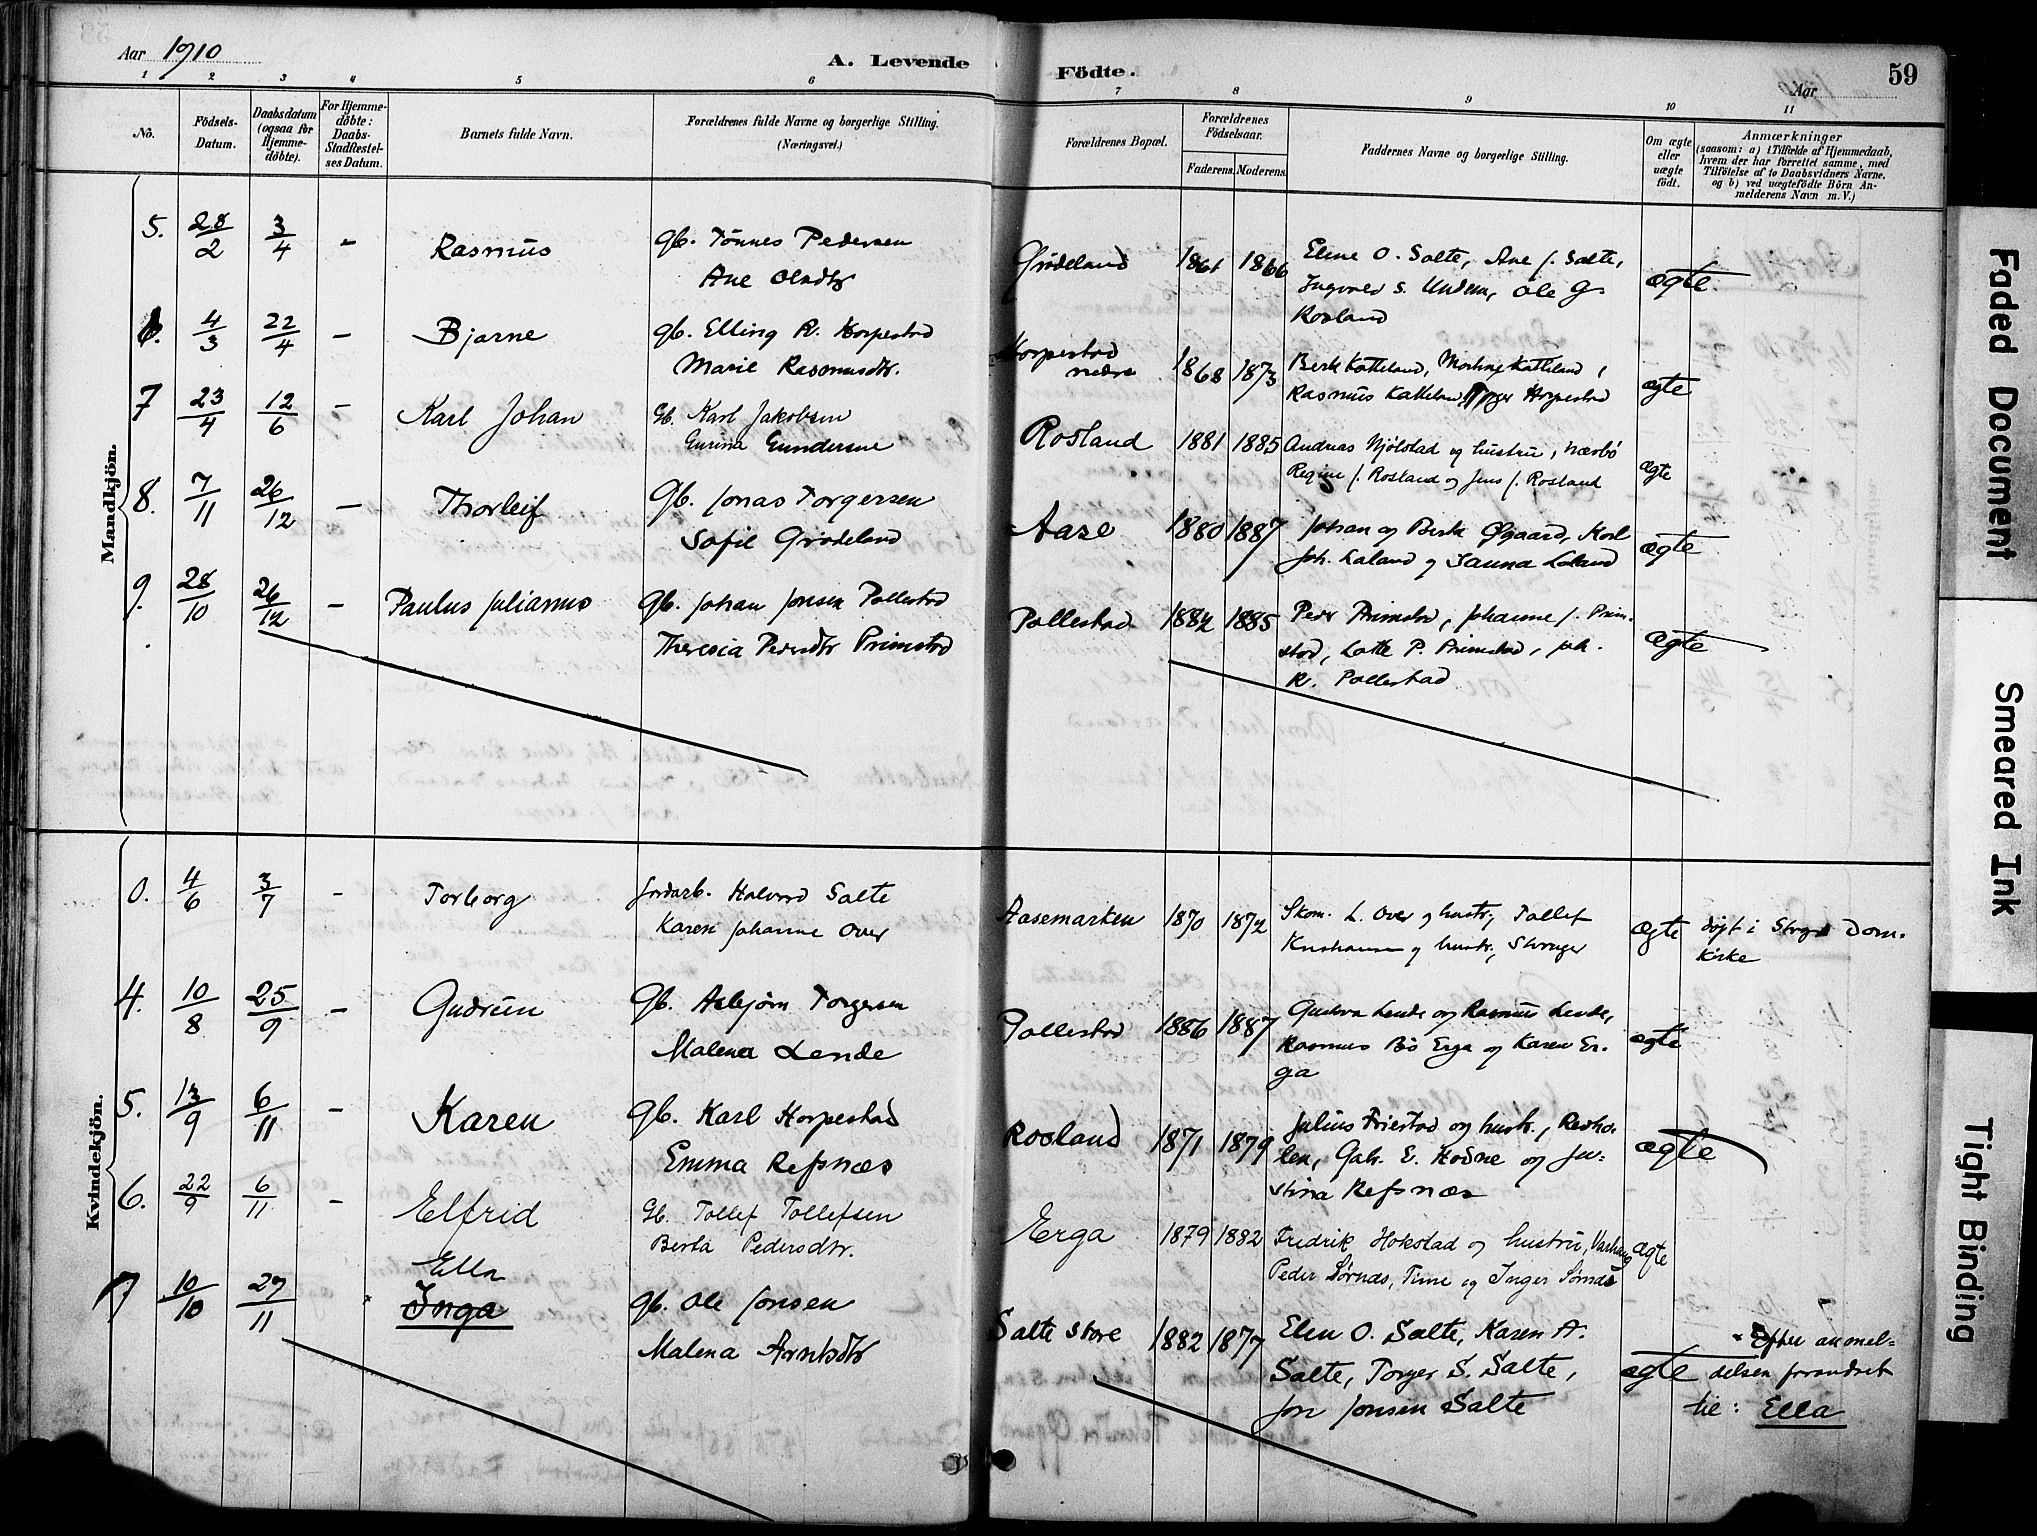 Aar 1910
A. Levende
Födte.
Aar
59
1 2 3 4 5 6 7 8 9 10 11
No.
Födsels-
Datum.
Daabsdatum
(ogsaa for
Hjemme-
döbte).
For Hjemme-
döbte:
Daabs-
Stadfæstel-
ses Datum.
Barnets fulde Navn.
Forældrenes fulde Navne og borgerlige Stilling.
(Næringsvei.)
Forældrenes Bopæl.
Forældrenes
Födselsaar.
Faderens. Moderens.
Faddernes Navne og borgerlige Stilling.
Om ægte
eller
uægte
födt.
Anmærkninger
(saasom: a) i Tilfælde af Hjemmedaab,
hvem der har forrettet samme, med
Tilföielse af to Daabsvidners Navne.
og b) ved uægtefödte Börn An-
melderens Navn m. V.)
Mandkjön.
5. 28/2 3/4 - Rasmus
Gb. Tönnes Pedersen
Ane Olsdtr
Grödeland 1861 1866
Elene O. Salte, Ane J. Salte,
Ingvald S. Undem, Ole G.
Rosland
ægte
6. 4/3 22/4 - Bjarne
Gb. Elling R. Horpestad
Marie Rasmusdtr.
Horpestad
nedre
1868 1873
Berte Katteland,
Rasmus Katteland, Horpestad
ægte
7 23/4 12/6 - Karl Johan
Gb. Karl Jakobsen
Gurine Gundersen
Rosland 1881 1885
Andreas Njölstad og hustru, Nærbö
Regine J. Rosland og Jens J. Rosland
ægte
8. 7/11 26/12 - Thorleif
Gb. Jonas Torgersen
Sofie Grödeland
Aase 1880 1887
Johan og Berte Øgaard, Karl
Joh. Laland og Janna Laland
ægte
9. 28/10 26/12 - Paulus Julianus
Gb. Johan Jonsen Pollestad
Theresia Pedersdtr Primstad
Pollestad 1882 1885
Peder Primstad, Johanne J. Prim-
stad, Lotte P. Primstad, Joh.
R. Pollestad
ægte
Kvindekjön.
0. 4/6 3/7 - Torborg
Jordarb. Halvard Salte
Karen Johanne Over
Aasemarken 1870 1872
Skom. L. Over og hustr, Tollef
Knshaven og hustr., Stvanger
ægte
döpt i Stvgr Dom-
kirke
4. 10/8 25/9 - Gudrun
Gb. Asbjörn Torgersen
Malena Lende
Pollestad 1886 1887
Gustava Lende og Rasmus Lende,
Rasmus Bö Erga og Karen Er-
ga
ægte
5. 13/9 6/11 - Karen
Gb. Karl Horpestad
Emma Refsnæs
Rosland 1871 1879
Julius Friestad og hustr., Redho-
len, Gab. E. Hodne og Ju-
stina Refsnæs
ægte
6. 22/9 6/11 - Elfrid
Gb. Tollef Tollefsen
Berta Pedersdtr.
Erga 1879 1882
Fredrik Hokstad og hustru, Varhaug
Peder Sörnæs, Time og Inger Sörnæs
ægte
Ella
7 10/10 27/11 Inga
Gb. Ole Jonsen
Malena Arntsdtr
Salte store 1882 1877
Elen O. Salte, Karen A.
Salte, Torger S. Salte,
Jon Jonsen Salte
ægte
Efter anmel-
delsen forandret
til: Ella
Faded Document
Smeared Ink
Tight Binding